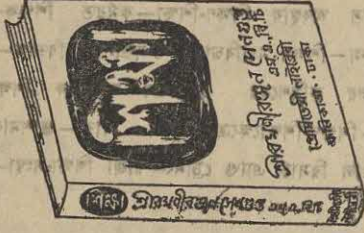 শিক্ষা
শ্রীরমণীরঞ্জন সেনগুপ্ত
এম, এ, বি, টি
প্রেসিডেন্সী লাইব্রেরী
কলিকাতা · ঢাকা
শিক্ষা শ্রীরমণীরঞ্জন সেনগুপ্ত এম, এ, বি, টি